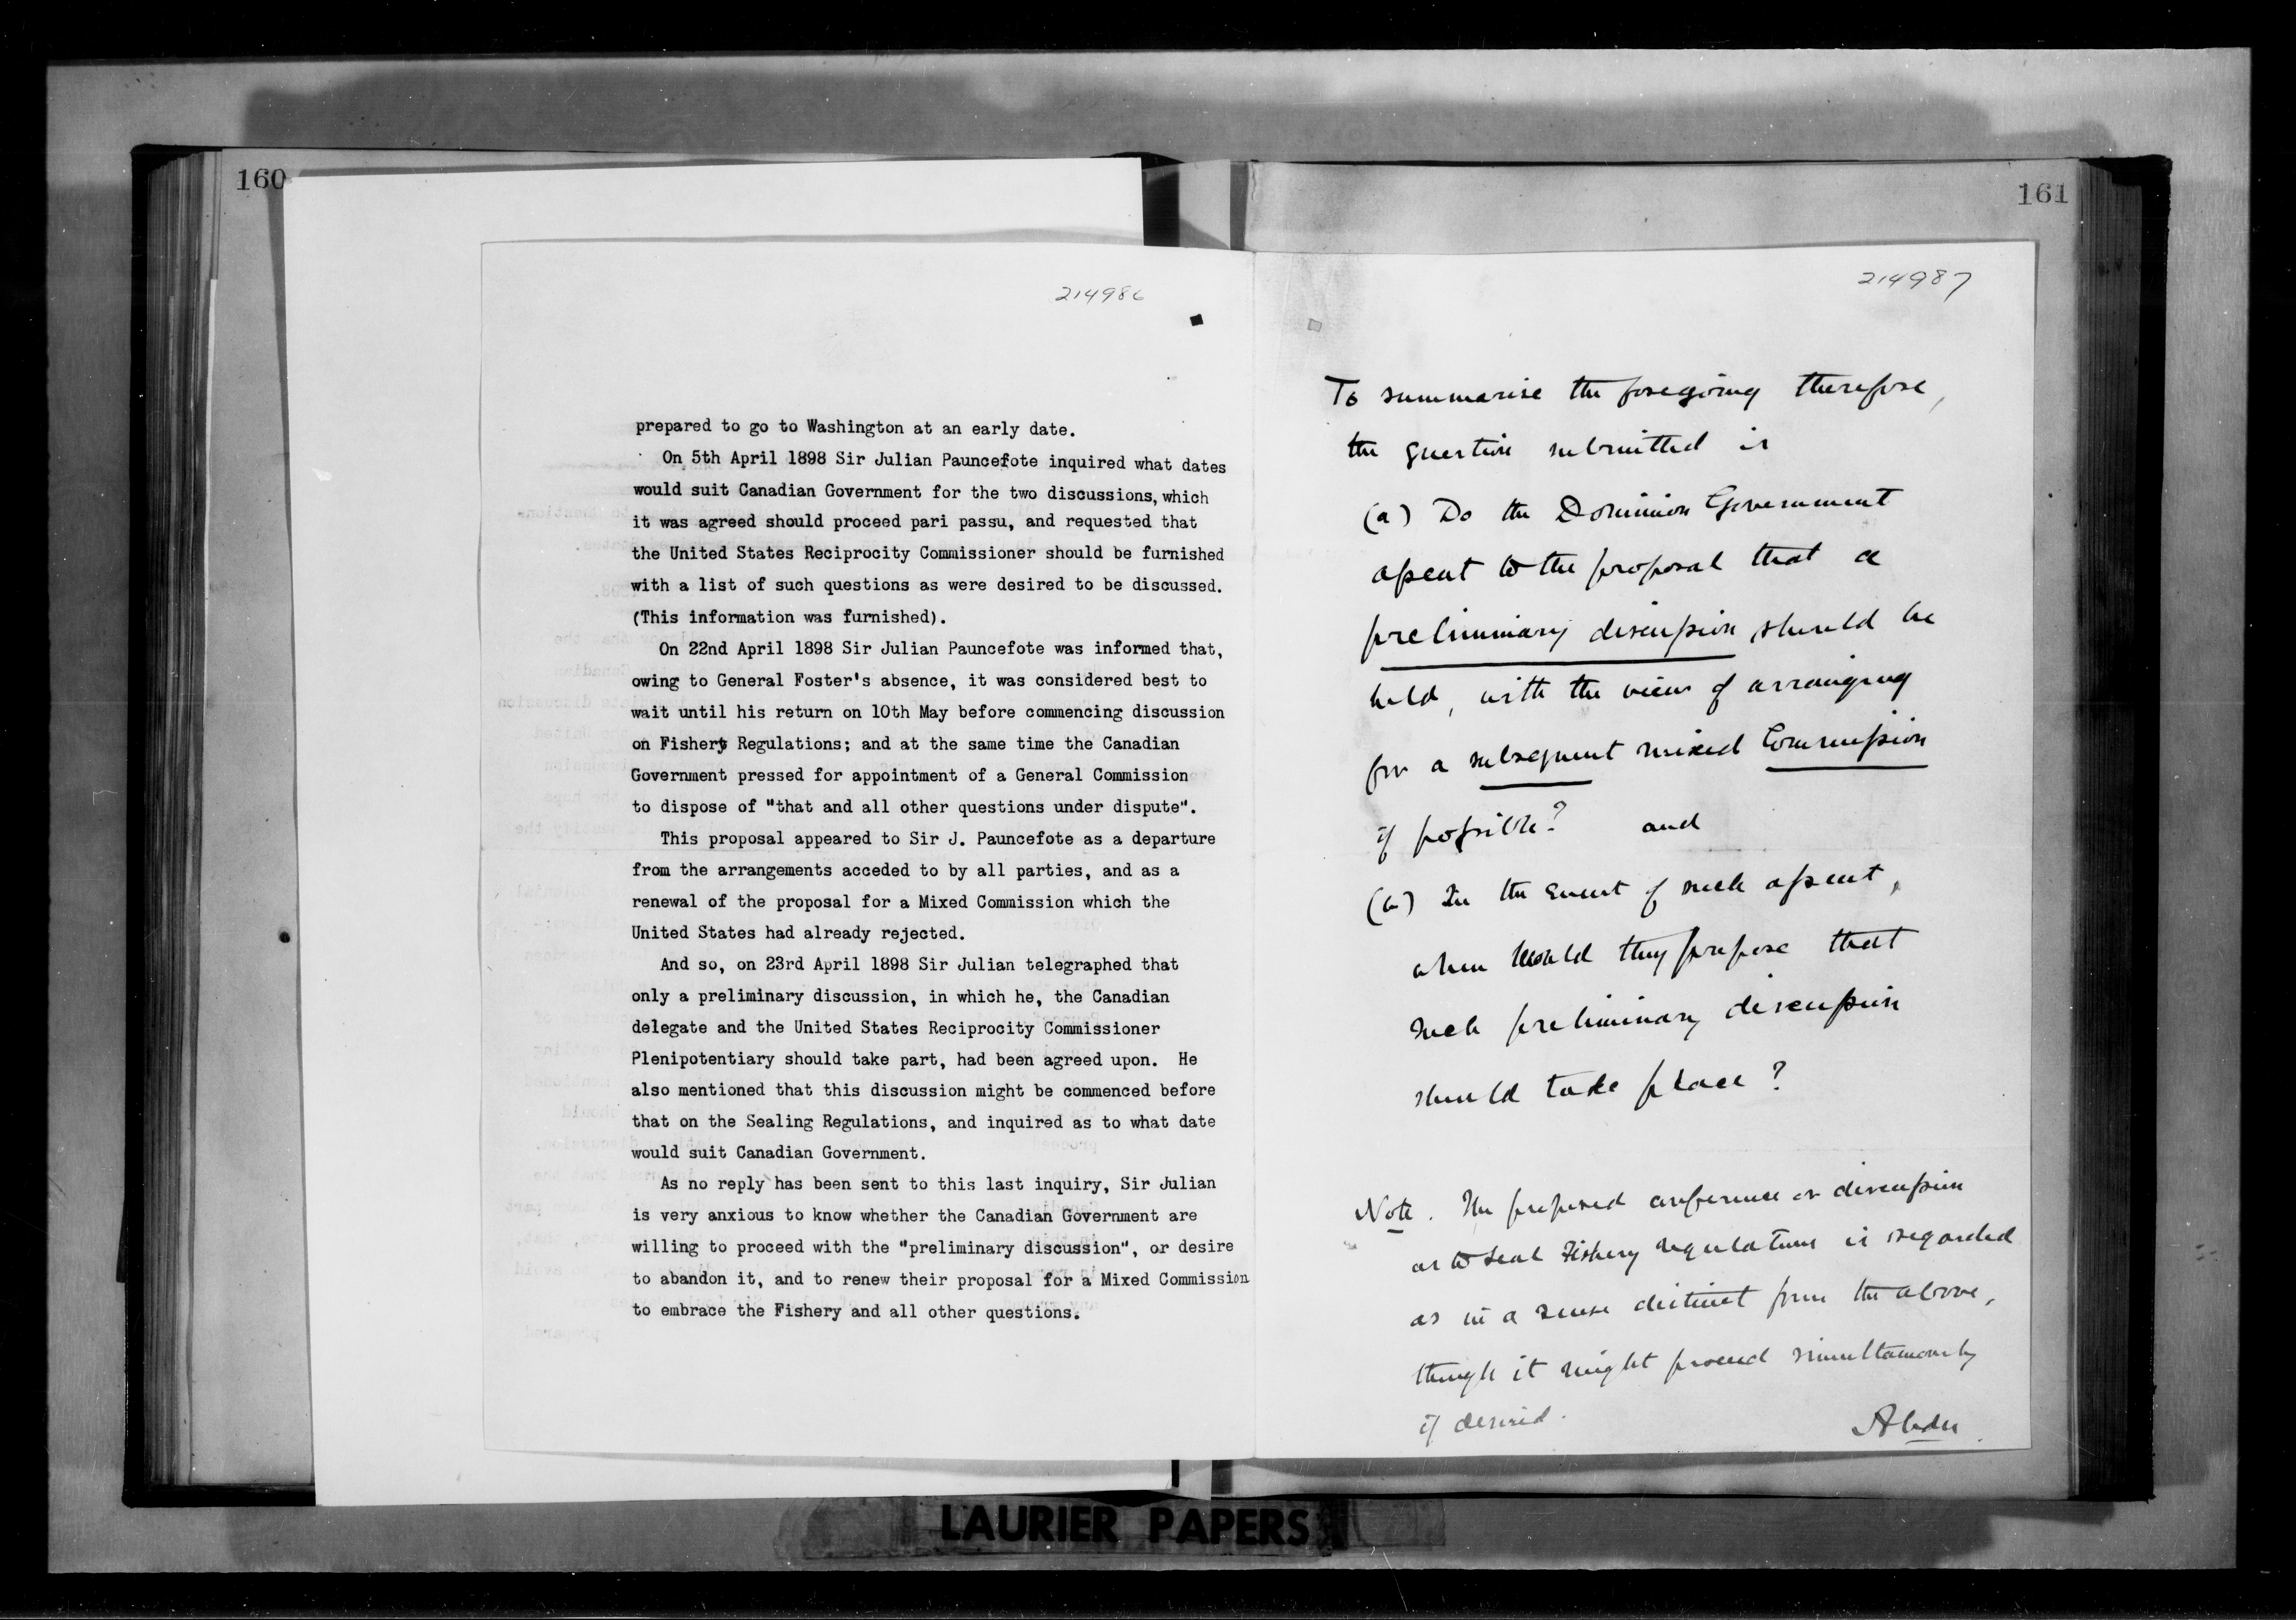 160
214986
prepared to go to Washington at an early date.
On 5th April 1898 Sir Julian Pauncefote inquired what dates
would suit Canadian Government for the two discussions, which
it was agreed should proceed pari passu, and requested that
the United States Reciprocity Commissioner should be furnished
with a list of such questions as were desired to be discussed.
(This information was furnished).
On 22nd April 1898 Sir Julian Pauncefote was informed that,
owing to General Foster's absence, it was considered best to
wait until his return on 10th May before commencing discussion
on Fishery Regulations; and at the same time the Canadian
Government pressed for appointment of a General Commission
to dispose of "that and all other questions under dispute".
This proposal appeared to Sir J. Pauncefote as a departure
from the arrangements acceded to by all parties, and as a
renewal of the proposal for a Mixed Commission which the
United States had already rejected.
And so, on 23rd April 1898 Sir Julian telegraphed that
only a preliminary discussion, in which he, the Canadian
delegate and the United States Reciprocity Commissioner
Plenipotentiary should take part, had been agreed upon. He
also mentioned that this discussion might be commenced before
that on the Sealing Regulations, and inquired as to what date
would suit Canadian Government.
As no reply has been sent to this last inquiry, Sir Julian
is very anxious to know whether the Canadian Government are
willing to proceed with the "preliminary discussion", or desire
to abandon it, and to renew their proposal for a Mixed Commission
to embrace the Fishery and all other questions.
161
214987
To summarise the foregoing therefore,
the question submitted is
(a) Do the Dominion Government
assent to the proposal that a
preliminary discussion should be
held, with the view of arranging
for a subsequent mixed Commission
if possible? and
(b) In the event of such assent,
when would they propose that
such preliminary discussion
should take place?
Note. The proposed conference or discussion
as to Seal Fishery regulations is regarded
as in a sense distinct from the above,
though it might proceed simultaneously
if desired.
LAURIER PAPERS